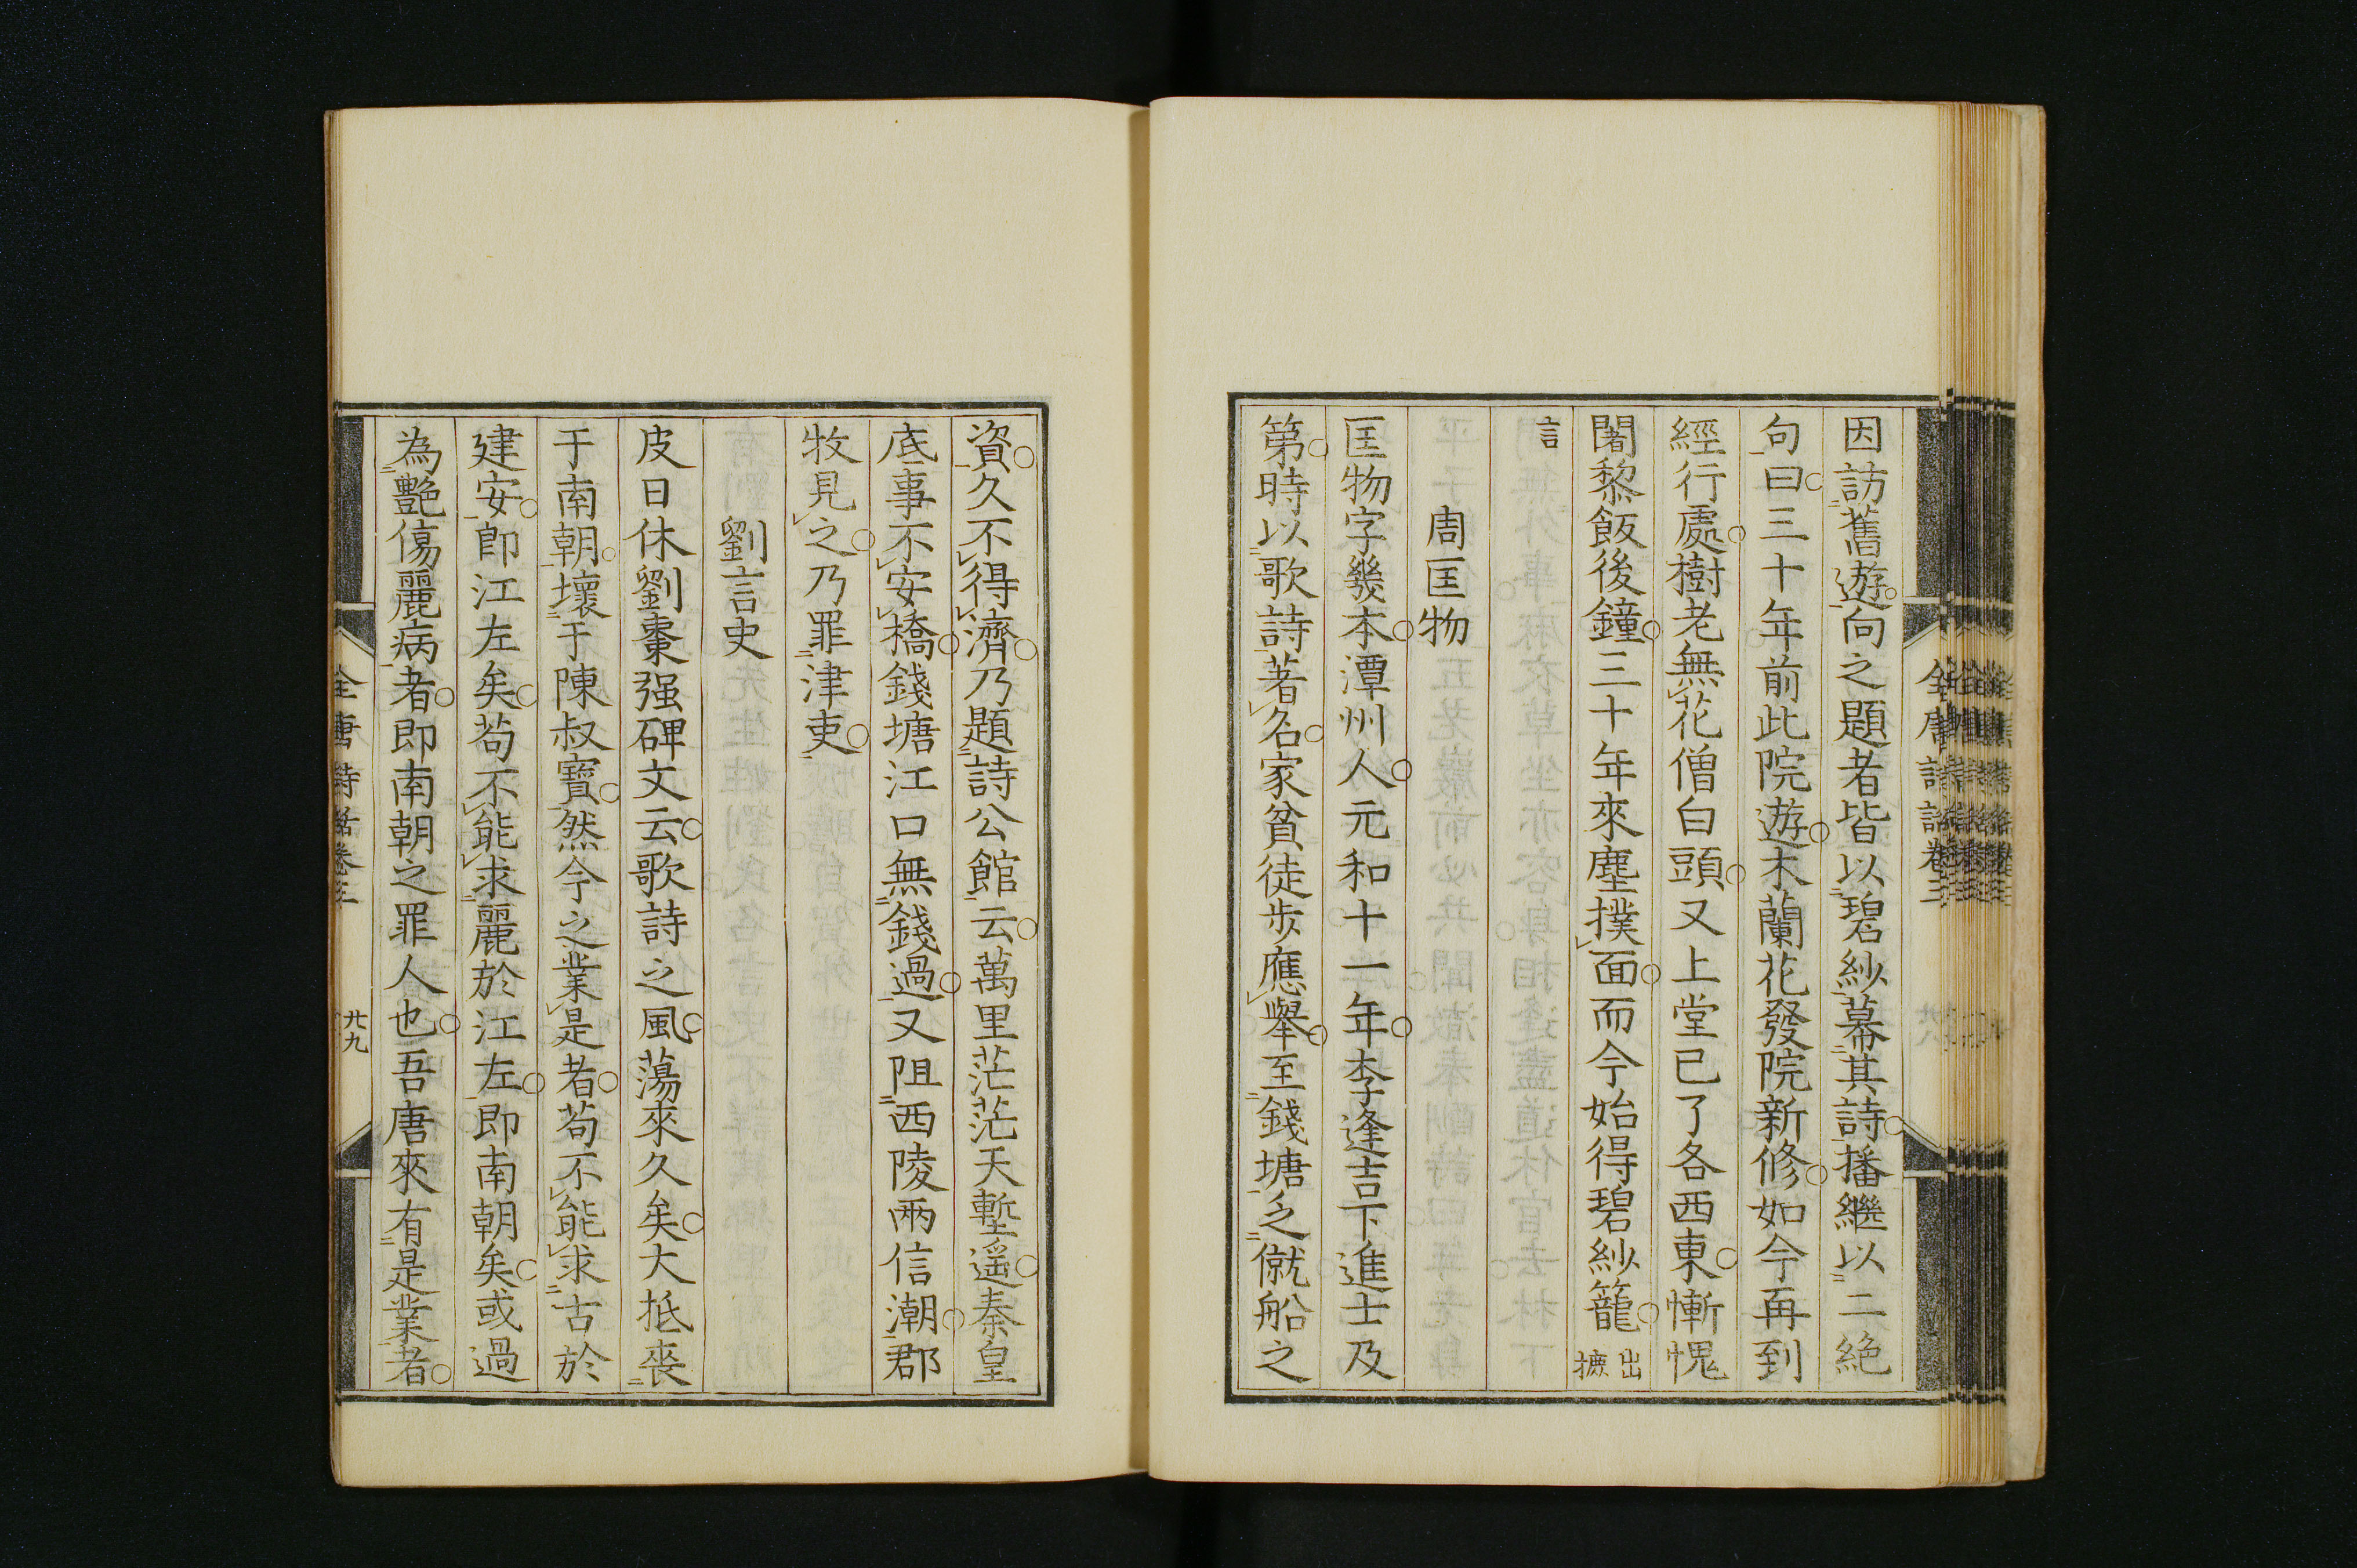 全唐詩話卷三
因訪舊遊向之題者皆以碧紗幕其詩播繼以二絶
句曰三十年前此院遊木蘭花發院新修如今再到
經行處樹老無花僧白頭又上堂已了各西東慚愧
闍黎飯後鐘三十年來塵撲面而今始得碧紗籠出摭
言
周匡物
匡物字幾本潭州人元和十一年李逢吉下進士及
第時以歌詩著名家貧徒步應舉至錢塘乏僦船之
資久不得濟乃題詩公館云萬里茫茫天塹遥秦皇
底事不安橋錢塘江口無錢過又阻西陵兩信潮郡
牧見之乃罪津吏
劉言史
皮日休劉棗强碑文云歌詩之風蕩來久矣大抵喪
于南朝壞于陳叔寶然今之業是者苟不能求古於
建安即江左矣苟不能求麗於江左即南朝矣或過
為艷傷麗病者即南朝之罪人也吾唐來有是業者
全唐詩話卷三
廿九